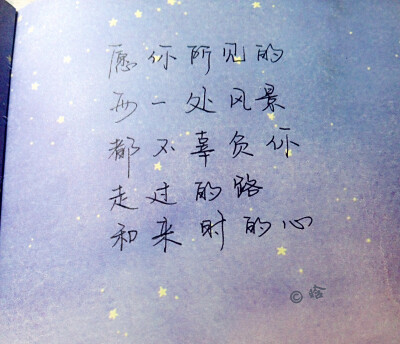 愿你所见的
每一处风景
都不辜负你
走过的路
和来时的心
©